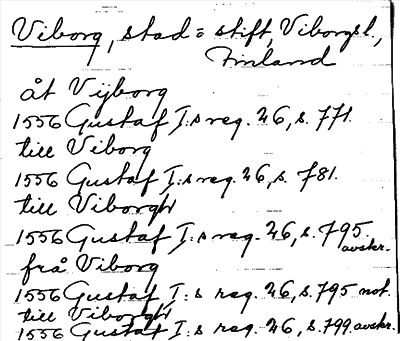 Viborg, stad = stift, Viborgsl.,
Finland
åt Vijborg
1556 Gustaf I:s reg. 26, s. 771.
till Viborg
1556 Gustaf I:s reg. 26, s. 781.
till Viborgh
1556 Gustaf I:s reg. 26, s. 795.
avskr.
frå Viborg
1556 Gustaf I:s reg. 26, s. 795 not.
till Viborgh
1556 Gustaf I:s reg. 26, s. 799. avskr.